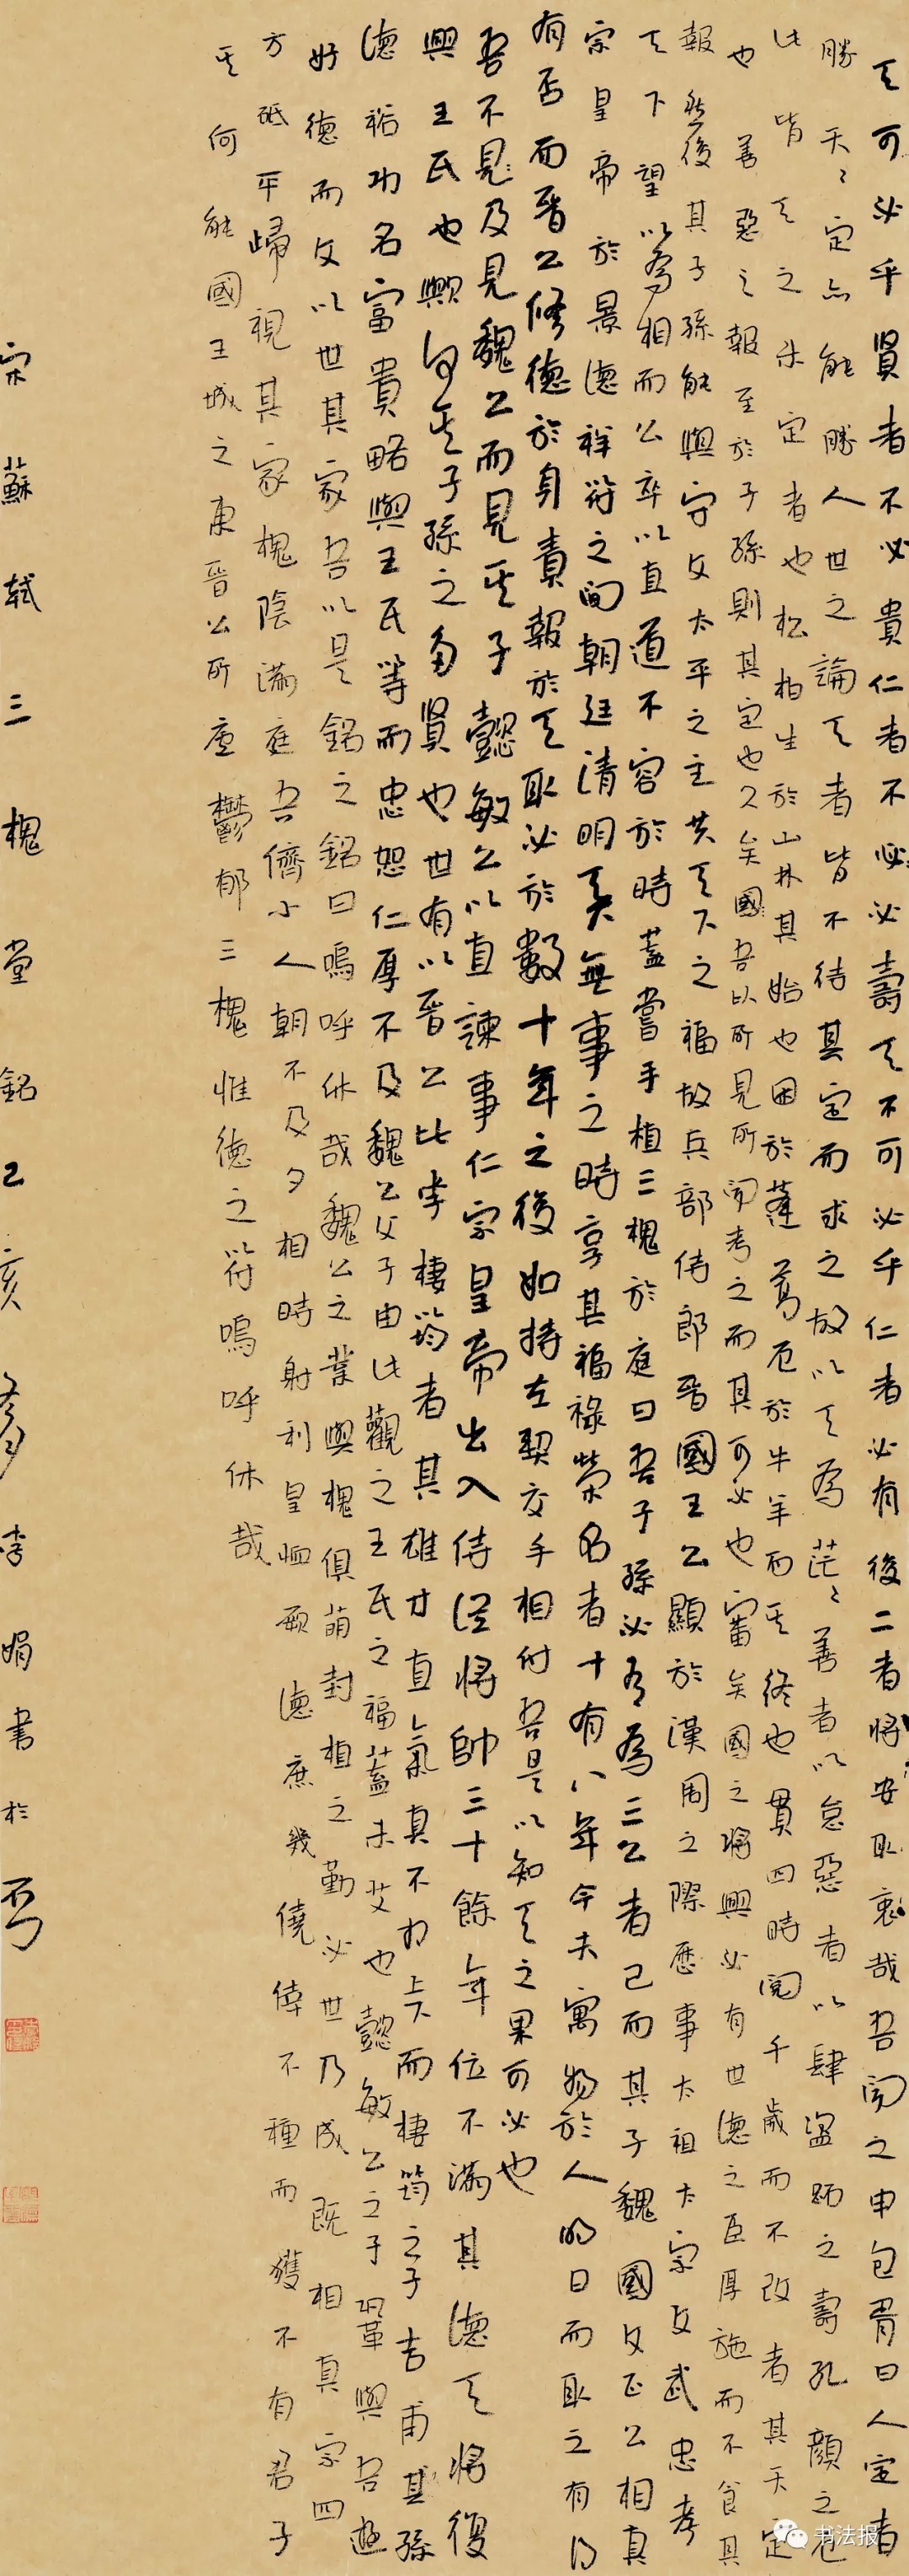 天可必乎賢者不必貴仁者不必必壽天不可必乎仁者必有後二者將安取衷哉吾聞之申包胥曰人定者
勝天天定亦能勝人世之論天者皆不待其定而求之故以天為茫茫善者以怠惡者以肆盜跖之壽孔顏之厄
此皆天之未定者也松柏生於山林其始也困於蓬蒿厄於牛羊而其終也貫四時閱千歲而不改者其天定
也善惡之報至於子孫則其定也久矣國吾以所見所聞考之而其可必也審矣國之將興必有世德之臣厚施而不食其
報然後其子孫能與守文太平之主共天下之福故兵部侍郎晉國王公顯於漢周之際歷事太祖太宗文武忠孝
天下望以為相而公卒以直道不容於時蓋嘗手植三槐於庭曰吾子孫必有為三公者已而其子魏國文正公相真
宗皇帝於景德祥符之間朝廷清明天無事之時享其福祿榮名者十有八年今夫寓物於人明日而取之有得
有否而晉公修德於身責報於天取必於數十年之後如持左契交手相付吾是以知天之果可必也
吾不見及見魏公而見其子懿敏公以直諫事仁宗皇帝出入侍從將帥三十餘年位不滿其德天將復
興王氏也歟何其子孫之多賢也世有以晉公比李棲筠者其雄才直氣真不相上下而棲筠之子吉甫其孫
德裕功名富貴略與王氏等而忠恕仁厚不及魏公父子由此觀之王氏之福蓋未艾也懿敏公之子鞏與吾遊
好德而文以世其家吾以是銘之銘曰嗚呼休哉魏公之業與槐俱萌封植之勤必世乃成既相真宗四
方砥平歸視其家槐陰滿庭吾儕小人朝不及夕相時射利皇恤厥德庶幾僥倖不種而獲不有君子
其何能國王城之東晉公所廬鬱郁三槐惟德之符嗚呼休哉
宋蘇軾三槐堂銘乙亥冬月李娟書於
书法报